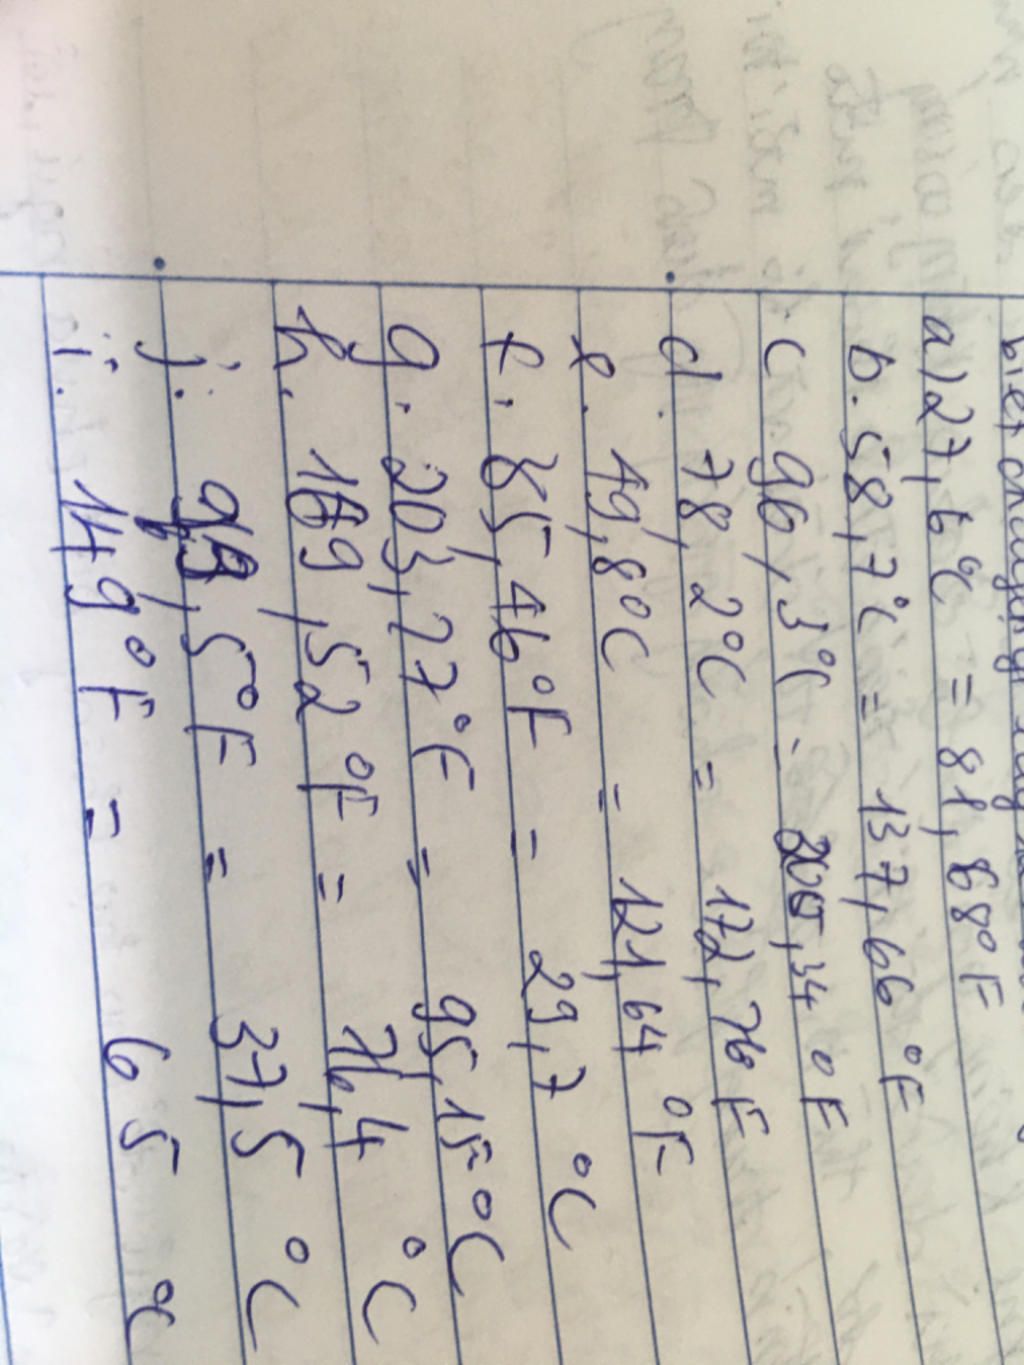 a) 27,6°C = 81,68°F
b. 58,7°C = 137,66 °F
c. 96,3°C = 205,34 °F
d. 78,2°C = 172,76°F
e. 49,8°C = 121,64 °F
f. 85,46°F = 29,7 °C
g. 203,27°F = 95,15°C
h. 169,52 °F = 76,4 °C
j. 99,5°F = 37,5 °C
i. 149°F = 65 °C